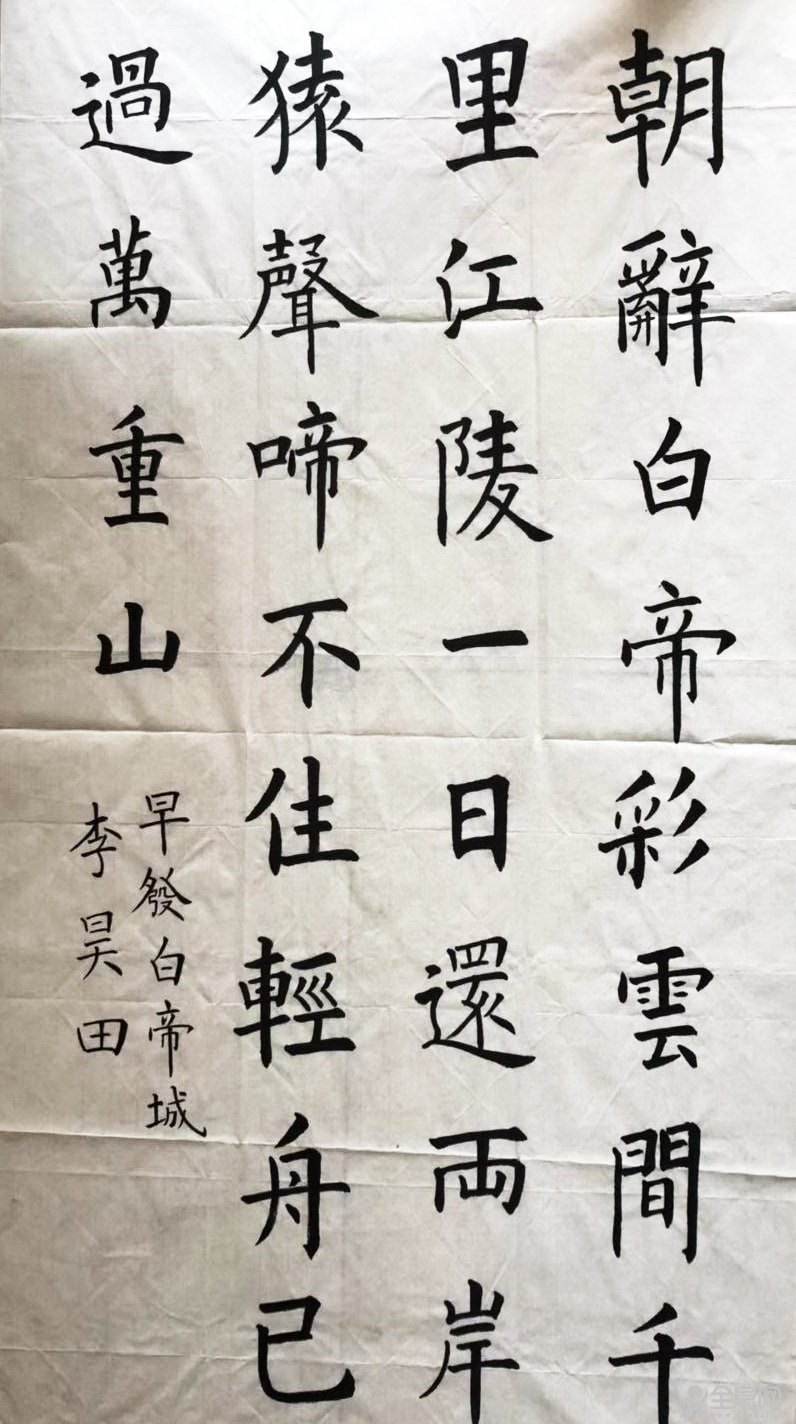 朝辭白帝彩雲間千
里江陵一日還両岸
猿聲啼不住輕舟已
過萬重山
早發白帝城
李昊田
全息网